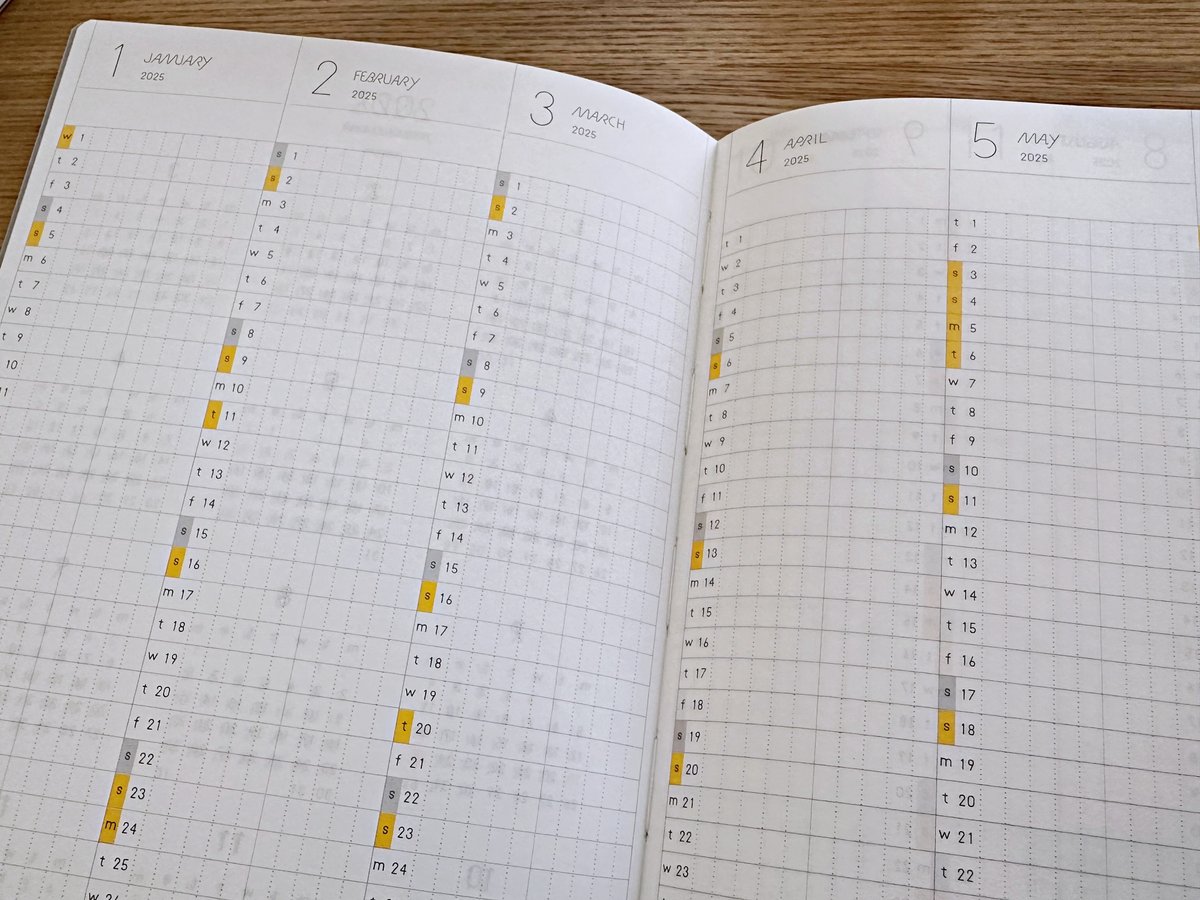 1 JANUARY
2025
w 1
t 2
f 3
s 4
s 5
m 6
t 7
w 8
t 9
10
11
2 FEBRUARY
2025
s 1
s 2
m 3
t 4
w 5
t 6
f 7
s 8
s 9
m 10
t 11
w 12
t 13
f 14
s 15
s 16
m 17
t 18
w 19
t 20
f 21
s 22
s 23
m 24
t 25
3 MARCH
2025
s 1
s 2
m 3
t 4
w 5
t 6
f 7
s 8
s 9
m 10
t 11
w 12
t 13
f 14
s 15
s 16
m 17
t 18
w 19
t 20
f 21
s 22
s 23
m 24
4 APRIL
2025
t 1
w 2
t 3
f 4
s 5
s 6
m 7
t 8
w 9
t 10
f 11
s 12
s 13
m 14
t 15
w 16
t 17
f 18
s 19
s 20
m 21
t 22
w 23
5 MAY
2025
t 1
f 2
s 3
s 4
m 5
t 6
w 7
t 8
f 9
s 10
s 11
m 12
t 13
w 14
t 15
f 16
s 17
s 18
m 19
t 20
w 21
t 22